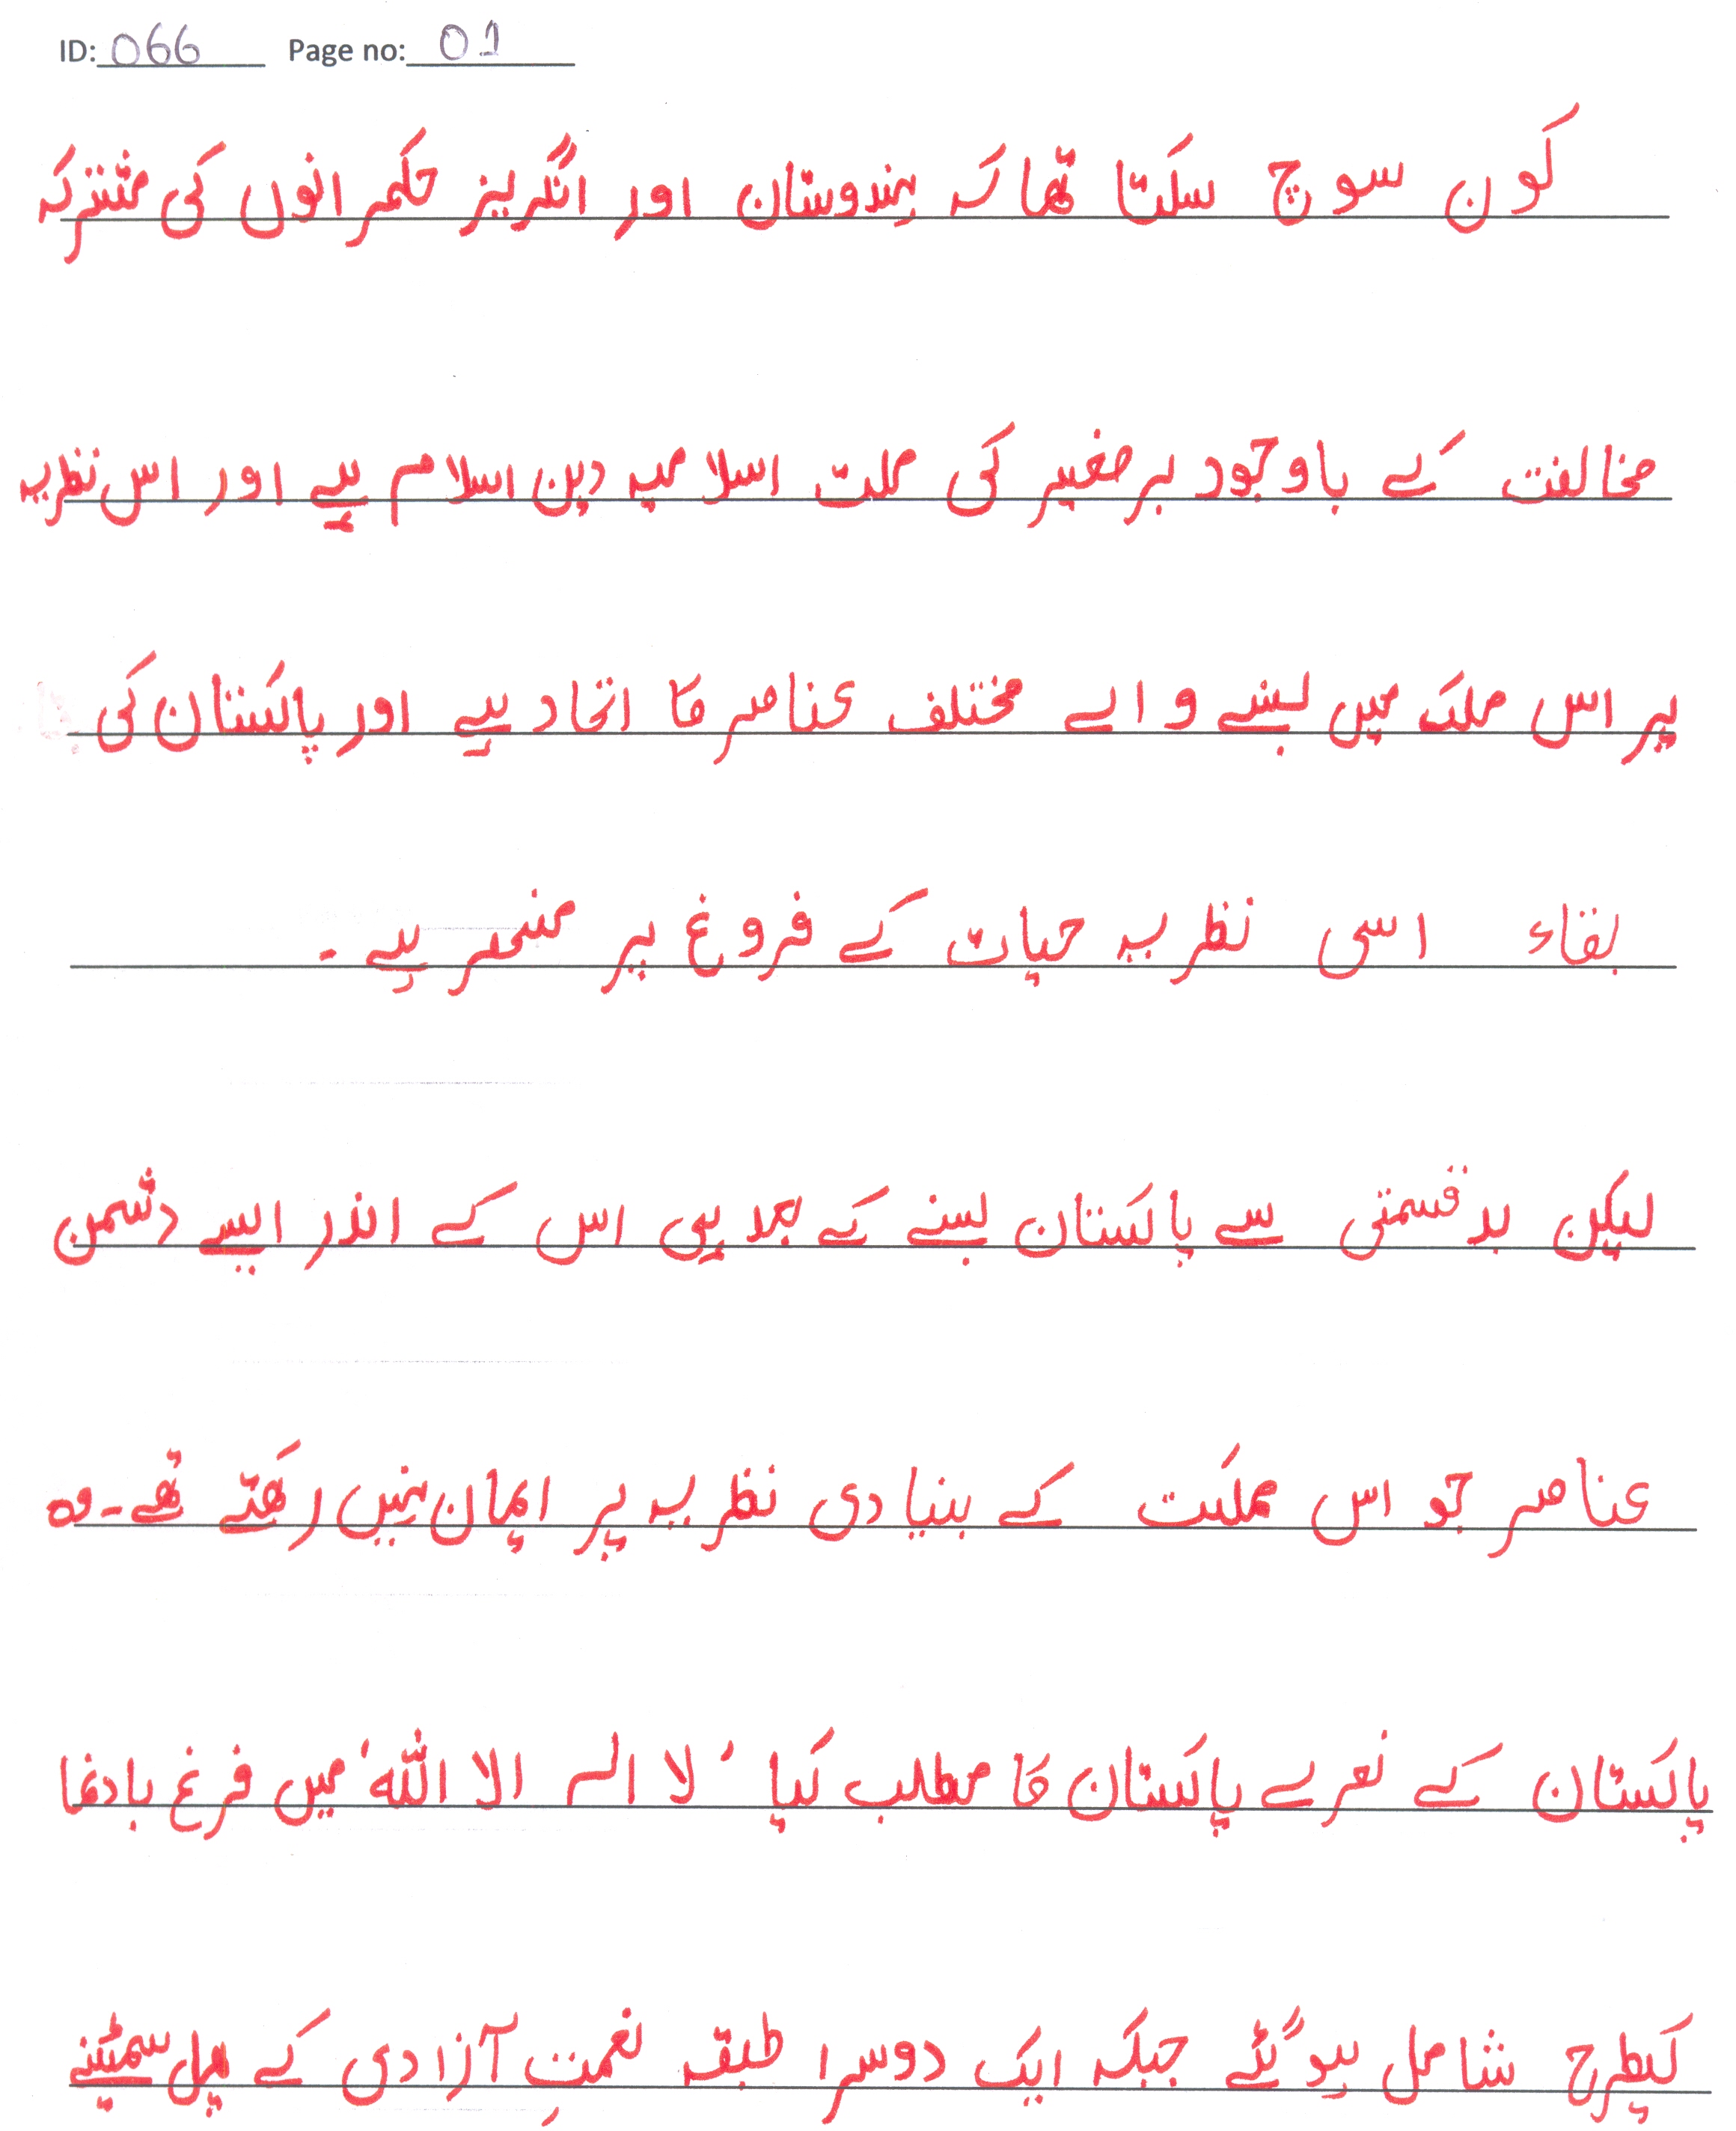 ID: 066 Page no: 01
کون سوچ سکتا تھا کہ ہندوستان اور انگریز حکمرانوں کی مشترکہ
مخالفت کے باوجود برصغیر کی ملت اسلامیہ دین اسلام ہے اور اس نظریہ
پر اس ملک میں بسنے والے مختلف عناصر کا اتحاد ہے اور پاکستان کی
بقاء اسی نظریہ حیات کے فروغ پر منحصر ہے ۔
لیکن بدقسمتی سے پاکستان بسنے کے بعد ہی اس کے اندر ایسے دشمن
عناصر جو اس مملکت کے بنیادی نظریہ پر ایمان نہیں رکھتے تھے ۔ وہ
پاکستان کے نعرے پاکستان کا مطلب کیا ' لا الہ الا اللہ ' میں فرغ بادنما
کیطرح شامل ہو گئے جبکہ ایک دوسرا طبقہ نعمتِ آزادی کے پھل سمیٹنے